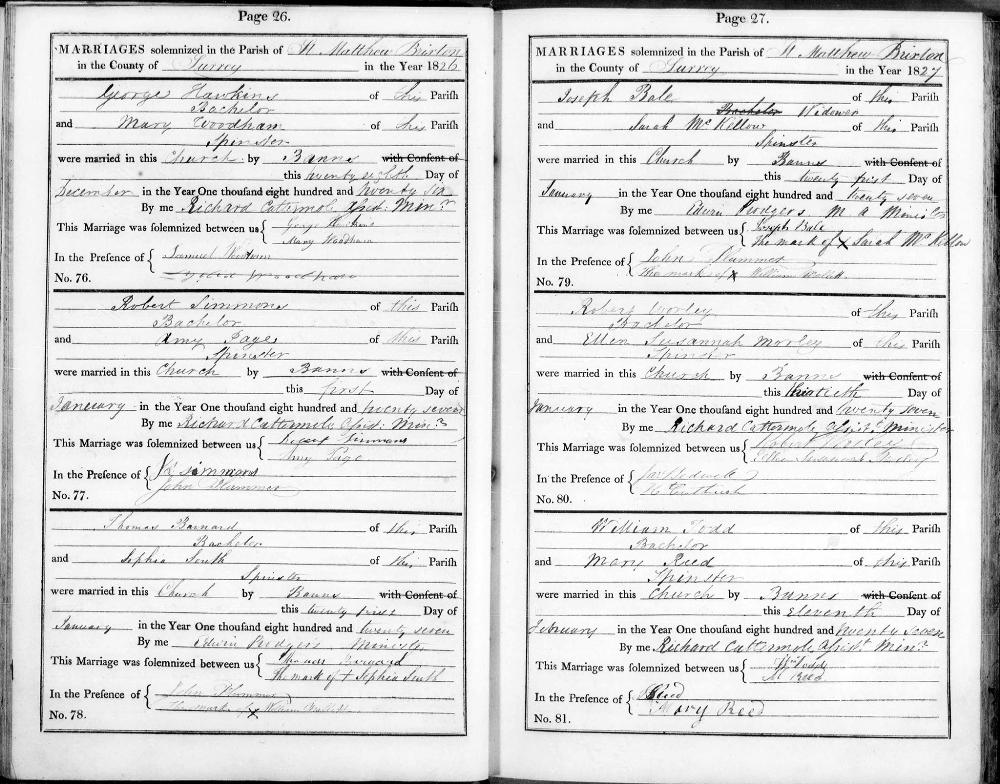 Page 26.
MARRIAGES solemnized in the Parish of St. Matthew Brixton
in the County of Surrey in the Year 1826
George Hawkins of this Parish
Bachelor
and Mary Woodham of this Parish
Spinster
were married in this Church by Banns with Consent of
this twenty eighth Day of
December in the Year One thousand eight hundred and twenty six
By me Richard Cattermole Assist: Minr.
This Marriage was solemnized between us George Hawkins
Mary Woodham
In the Presence of Samuel
No. 76.
Robert Simmons of this Parish
Bachelor
and Amy Page of this Parish
Spinster
were married in this Church by Banns with Consent of
this first Day of
January in the Year One thousand eight hundred and twenty seven
By me Richard Cattermole Assist: Minr.
This Marriage was solemnized between us Simmons
Amy Page
In the Presence of simmons
John Plummer
No. 77.
Thomas Barnard of this Parish
Bachelor
and Sophia South of this Parish
Spinster
were married in this Church by Banns with Consent of
this twenty first Day of
January in the Year One thousand eight hundred and twenty seven
By me Edwin Prodgers Minister
This Marriage was solemnized between us Thomas Barnard
The mark of + Sophia South
In the Presence of John Plummer
The mark of X William
No. 78.
Page 27.
MARRIAGES solemnized in the Parish of St. Matthew Brixton
in the County of Surrey in the Year 1827
Joseph Bale of this Parish
Bachelor Widower
and Sarah McKellow of this Parish
Spinster
were married in this Church by Banns with Consent of
this twenty first Day of
January in the Year One thousand eight hundred and twenty seven
By me Edwin Prodgers M A Minister
This Marriage was solemnized between us Joseph Bale
The mark of X Sarah McKellow
In the Presence of John Plummer
The mark of X William
No. 79.
Robert Worley of this Parish
Bachelor
and Ellen Susannah Morley of this Parish
Spinster
were married in this Church by Banns with Consent of
this thirtieth Day of
January in the Year One thousand eight hundred and twenty seven
By me Richard Cattermole Assist. Minister
This Marriage was solemnized between us Robert Worley
Ellen Susannah Morley
In the Presence of
No. 80.
William Todd of this Parish
Bachelor
and Mary Reed of this Parish
Spinster
were married in this Church by Banns with Consent of
this Eleventh Day of
February in the Year One thousand eight hundred and twenty seven
By me Richard Cattermole Assist. Minr.
This Marriage was solemnized between us Wm Todd
M Reed
In the Presence of Reed
Mary Reed
No. 81.